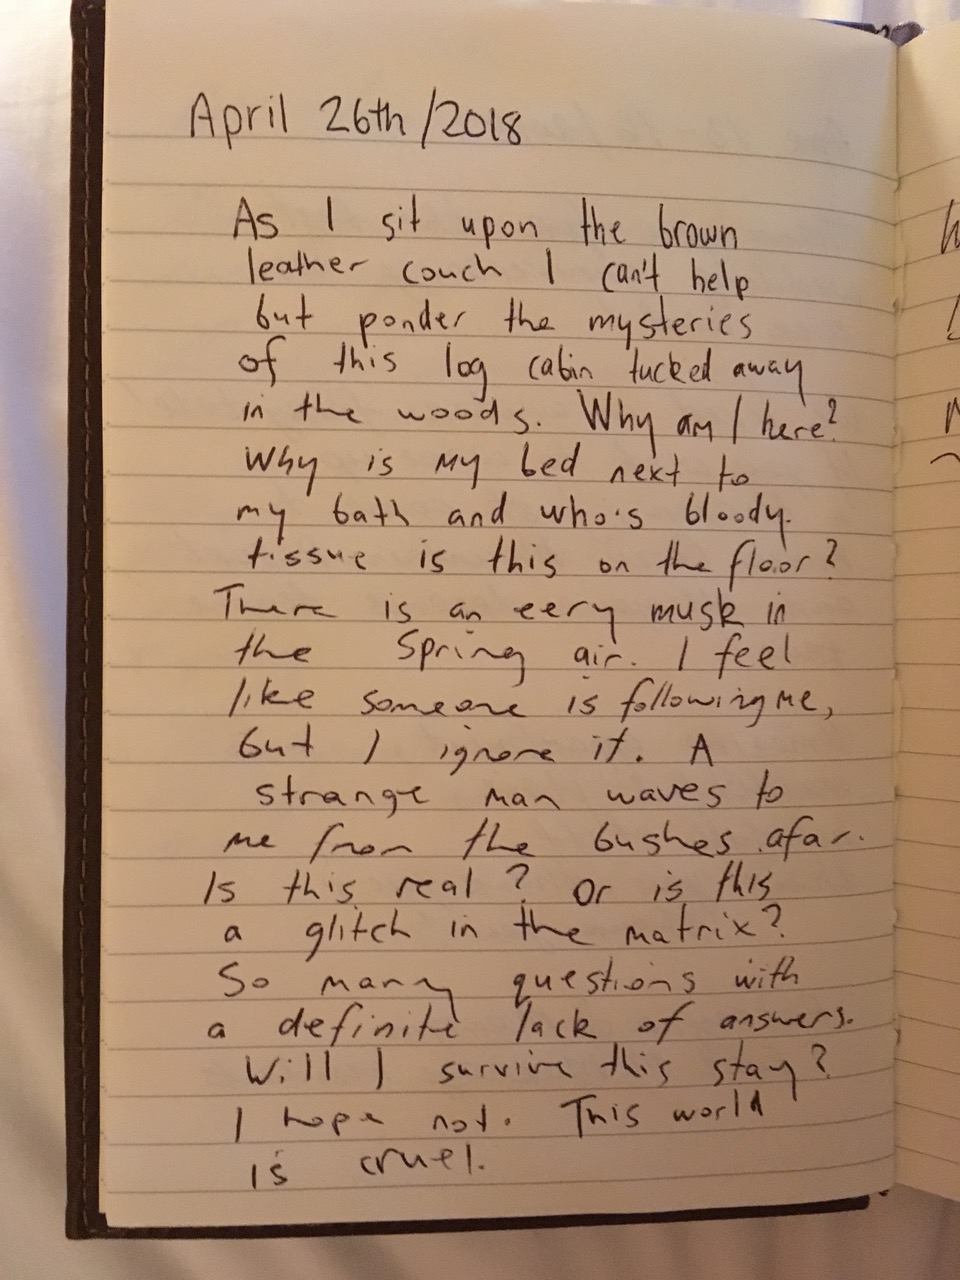 April 26th/2018
As I sit upon the brown
leather couch I can't help
but ponder the mysteries
of this log cabin tucked away
in the woods. Why am I here?
Why is my bed next to
my bath and who's bloody
tissue is this on the floor?
There is an eery musk in
the Spring air. I feel
like someone is following me,
but I ignore it. A
strange man waves to
me from the bushes afar.
Is this real? Or is this
a glitch in the matrix?
So many questions with
a definite lack of answers.
Will I survive this stay?
I hope not. This world
is cruel.